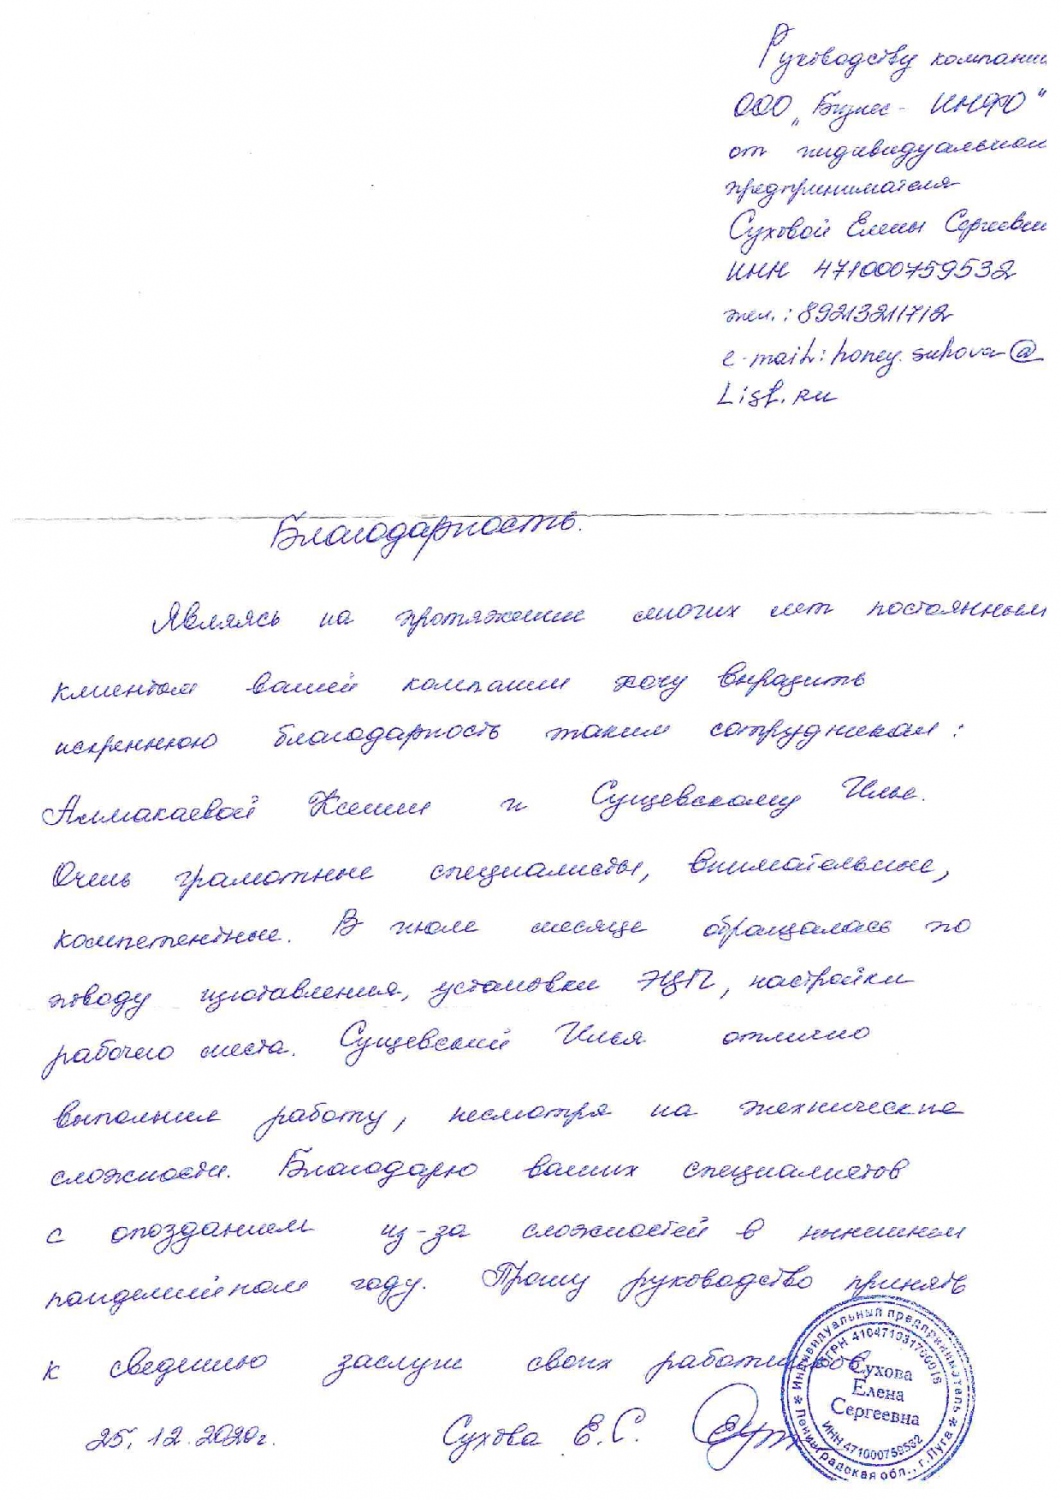 Руководству компании
ООО „Бизнес - ИНФО"
от индивидуальной
предпринимателя
Суховой Елены Сергеевны
ИНН 471000759532
тел.: 89213211712
e-mail: honey.suhova@
List.ru
Благодарность.
Являясь на протяжении многих лет постоянным
клиентом вашей компании хочу выразить
искреннюю благодарность таким сотрудникам:
Алмакаевой Ксении и Сущевскому Илье.
Очень грамотные специалисты, внимательные,
компетентные. В июле месяце обращалась по
поводу изготавления, установки ЭЦП, настройки
рабочего места. Сущевский Илья отлично
выполнил работу, несмотря на технические
сложности. Благодарю ваших специалистов
с опозданием из-за сложностей в нынешнем
пандемийном году. Прошу руководство принять
к сведению заслуги своих работников
25.12.2020г. Сухова Е.С.
Индивидуальный предприниматель
ОГРН
Сухова
Елена
Сергеевна
ИНН 471000759532
Ленинградская обл., г.Луга